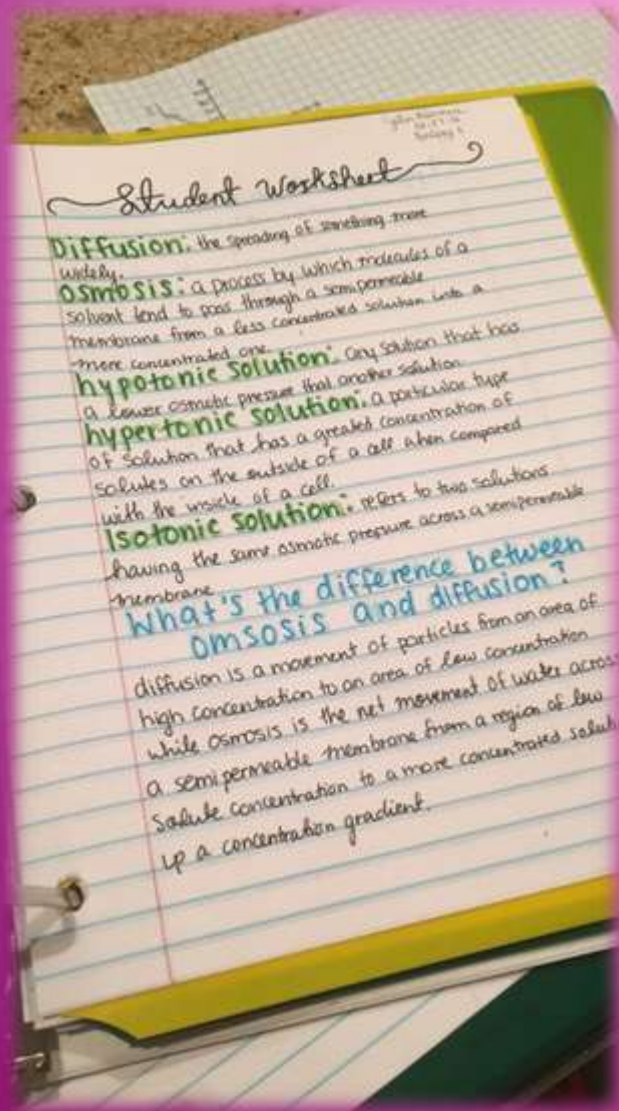 Student Worksheet
Diffusion: the spreading of something more
widely.
Osmosis: a process by which molecules of a
solvent tend to pass through a semipermeable
membrane from a less concentrated solution into a
more concentrated one.
hypotonic solution: any solution that has
a lower osmotic pressure that another solution
hypertonic solution: a particular type
of solution that has a greated concentration of
solutes on the outside of a cell when compared
with the inside of a cell.
Isotonic solution: refers to two solutions
having the same osmotic pressure across a semipermeable
membrane
What's the difference between
omsosis and diffusion?
diffusion is a movement of particles from an area of
high concentration to an area of low concentration
while osmosis is the net movement of water across
a semipermeable membrane from a region of low
solute concentration to a more concentrated solut
up a concentration gradient.